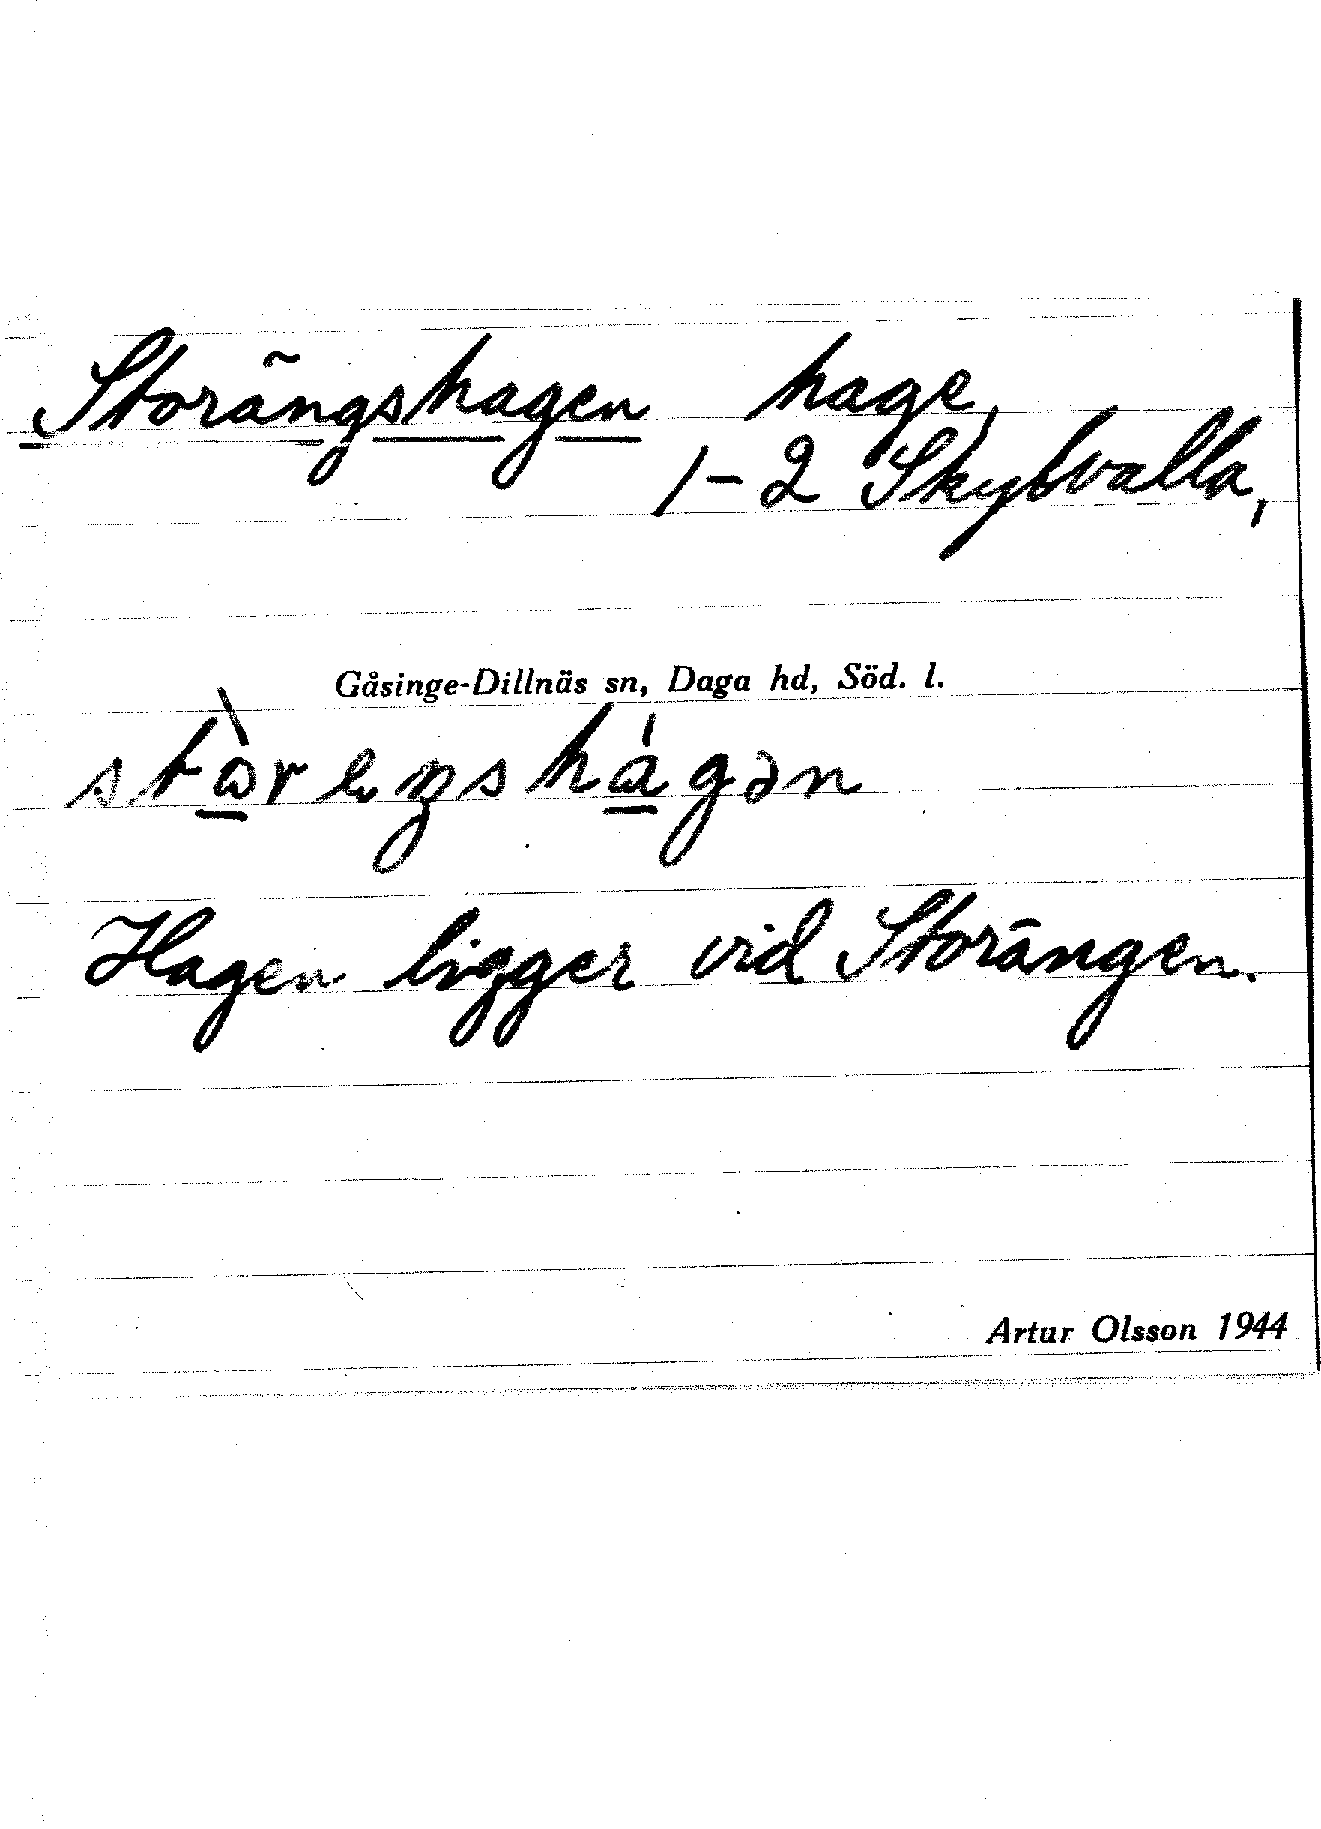 Storängshagen hage,
1-2 Skytvalla,
Gåsinge-Dillnäs sn, Daga hd, Söd. l.
Hagen ligger vid Storängen.
Artur Olsson 1944